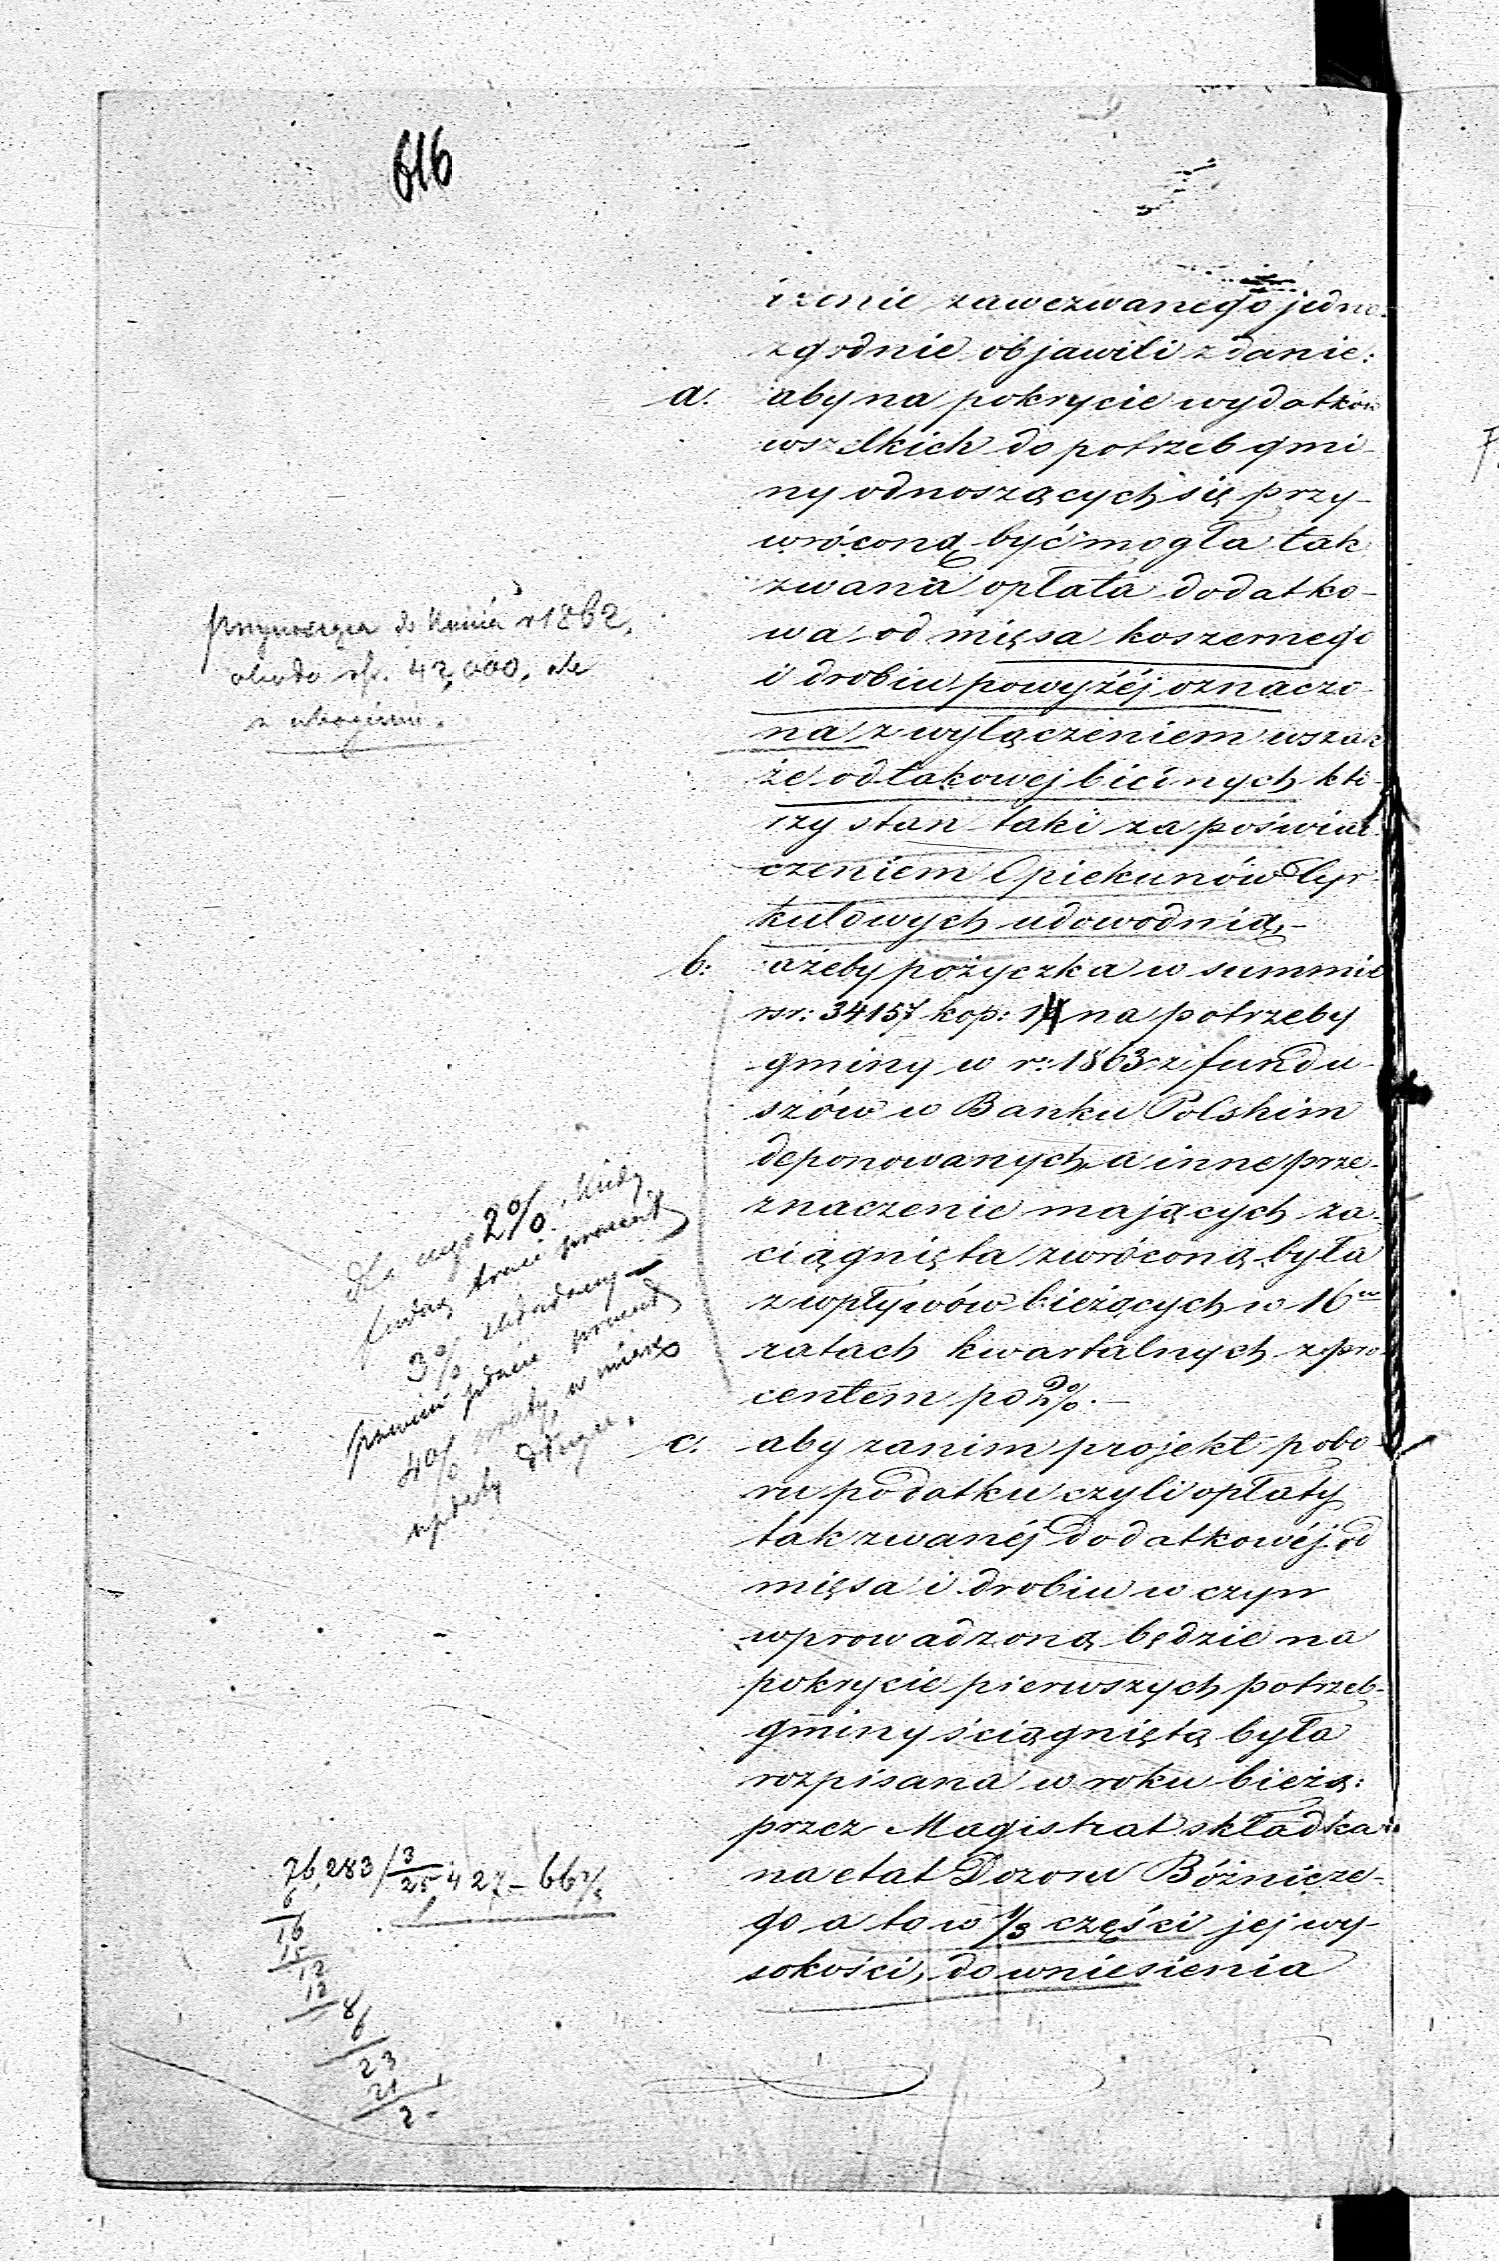 616
rzenie zawezwanego jedno-
zgodnie objawili zdanie:
a. aby na pokrycie wydatków
wszelkich do potrzeb gmi-
ny odnoszących się przy-
wróconą być mogła tak
zwana opłata dodatko-
wa od mięsa koszernego
i drobiu powyżéj oznaczo-
na z wyłączeniem wszak
że od takowej biednych któ-
rzy stan taki za poświad-
czeniem Opiekunów Cyr-
kułowych udowodnią.-
b: ażeby pożyczka w summie
rsr: 34157 kop: 14 na potrzeby
gminy w r: 1863 z fundu-
szów w Banku Polskim
deponowanych a inne prze-
znaczenie mających za-
ciągnięta zwróconą była
z wpływów bieżących w 16
ratach kwartalnych z pro-
centem po 2%.-
c. aby zanim projekt pobo-
ru podatku czyli opłaty
tak zwanéj dodatkowéj od
mięsa i drobiu w czyn
wprowadzoną będzie na
pokrycie pierwszych potrzeb
gminy ściągniętą była
rozpisana w roku bieżą:
przez Magistrat składka
na etat Dozoru Bóżnicze-
go a to w 1/3 części jej wy-
sokości, do wniesienia
1862,
42,000, ale
2%. kiedy
traci procent
3%
powinien
4%
w miarę
spłaty długu.
76,283 / 3
25,427 - 66 2/3
6
16
15
12
12
8
6
23
21
2